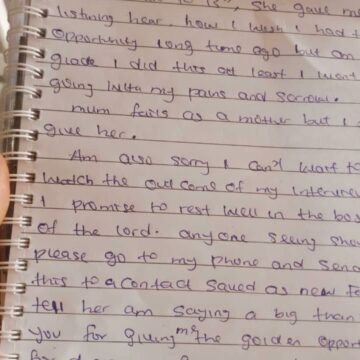 She gave m
listining hear. how I wish I had t
opportunity long tome ago but am
glade I did this at least I want
going with my pains and sorrow.
mum fails as a mother but I
give her.
Am also sorry I can't wait to
watch the out come of my interview
I promise to rest well in the bos
of the lord. anyone seeing
please go to my phone and sen
this to a contact saved as new
tell her am saying a big than
you for giving me the golden oppor